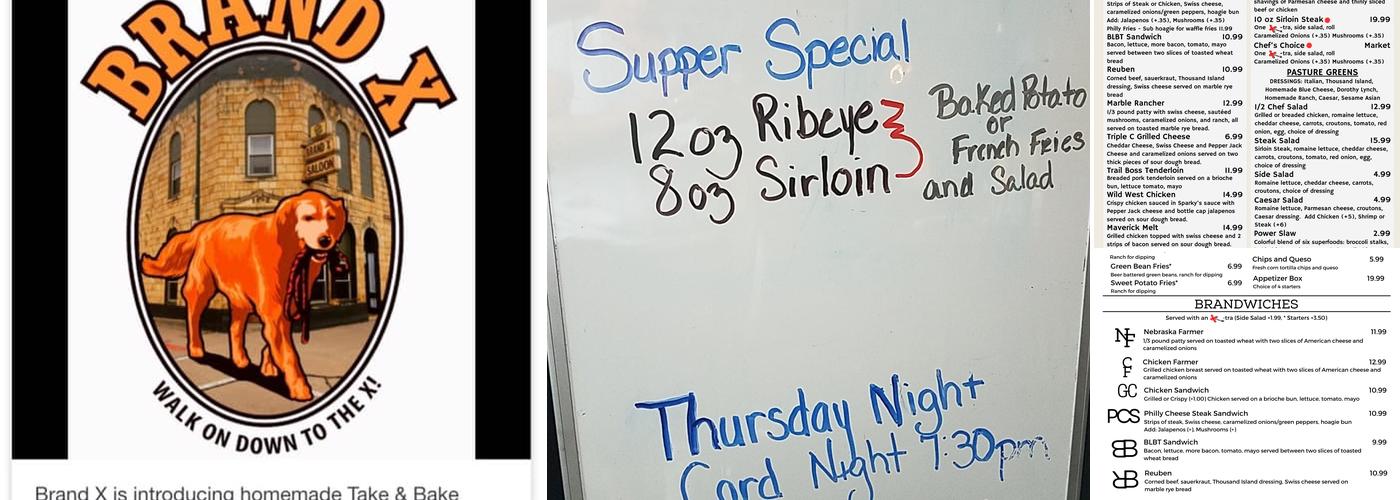 BRAND X
BRAND X
SALOON
WALK ON DOWN TO THE X!
Brand X is introducing homemade Take & Bake
Supper Special
12oz Ribeye
8oz Sirloin
Baked Potato
or
French Fries
and Salad
Thursday Night
Card Night 7:30pm
Strips of Steak or Chicken, Swiss cheese,
caramelized onions/green peppers, hoagie bun
Add: Jalapenos (+.35), Mushrooms (+.35)
Philly Fries - Sub hoagie for waffle fries 11.99
BLBT Sandwich 10.99
Bacon, lettuce, more bacon, tomato, mayo
served between two slices of toasted wheat
bread
Reuben 10.99
Corned beef, sauerkraut, Thousand Island
dressing, Swiss cheese served on marble rye
bread
Marble Rancher 12.99
1/3 pound patty with swiss cheese, sautéed
mushrooms, caramelized onions, and ranch, all
served on toasted marble rye bread.
Triple C Grilled Cheese 6.99
Cheddar Cheese, Swiss Cheese and Pepper Jack
Cheese and caramelized onions served on two
thick pieces of sour dough bread.
Trail Boss Tenderloin 11.99
Breaded pork tenderloin served on a brioche
bun, lettuce tomato, mayo
Wild West Chicken 14.99
Crispy chicken sauced in Sparky's sauce with
Pepper Jack cheese and bottle cap jalapenos
served on sour dough bread.
Maverick Melt 14.99
Grilled chicken topped with swiss cheese and 2
strips of bacon served on sour dough bread.
shavings of Parmesan cheese and thinly sliced
beef or chicken
10 oz Sirloin Steak 19.99
One -tra, side salad, roll
Caramelized Onions (+.35) Mushrooms (+.35)
Chef's Choice Market
One -tra, side salad, roll
Caramelized Onions (+.35) Mushrooms (+.35)
PASTURE GREENS
DRESSINGS: Italian, Thousand Island,
Homemade Blue Cheese, Dorothy Lynch,
Homemade Ranch, Caesar, Sesame Asian
1/2 Chef Salad 12.99
Grilled or breaded chicken, romaine lettuce,
cheddar cheese, carrots, croutons, tomato, red
onion, egg, choice of dressing
Steak Salad 15.99
Sirloin Steak, romaine lettuce, cheddar cheese,
carrots, croutons, tomato, red onion, egg,
choice of dressing
Side Salad 4.99
Romaine lettuce, cheddar cheese, carrots,
croutons, choice of dressing
Caesar Salad 4.99
Romaine lettuce, Parmesan cheese, croutons,
Caesar dressing. Add Chicken (+5), Shrimp or
Steak (+6)
Power Slaw 2.99
Colorful blend of six superfoods: broccoli stalks,
Ranch for dipping
Green Bean Fries* 6.99
Beer battered green beans, ranch for dipping
Sweet Potato Fries* 6.99
Ranch for dipping
Chips and Queso 5.99
Fresh corn tortilla chips and queso
Appetizer Box 19.99
Choice of 4 starters
BRANDWICHES
Served with an -tra (Side Salad +1.99, * Starters +3.50)
NF Nebraska Farmer 11.99
1/3 pound patty served on toasted wheat with two slices of American cheese and
caramelized onions
CF Chicken Farmer 12.99
Grilled chicken breast served on toasted wheat with two slices of American cheese and
caramelized onions
GC Chicken Sandwich 10.99
Grilled or Crispy (+1.00) Chicken served on a brioche bun, lettuce, tomato, mayo
PCS Philly Cheese Steak Sandwich 10.99
Strips of steak, Swiss cheese, caramelized onions/green peppers, hoagie bun
Add: Jalapenos (+), Mushrooms (+)
BB BLBT Sandwich 9.99
Bacon, lettuce, more bacon, tomato, mayo served between two slices of toasted
wheat bread
RB Reuben 10.99
Corned beef, sauerkraut, Thousand Island dressing, Swiss cheese served on
marble rye bread